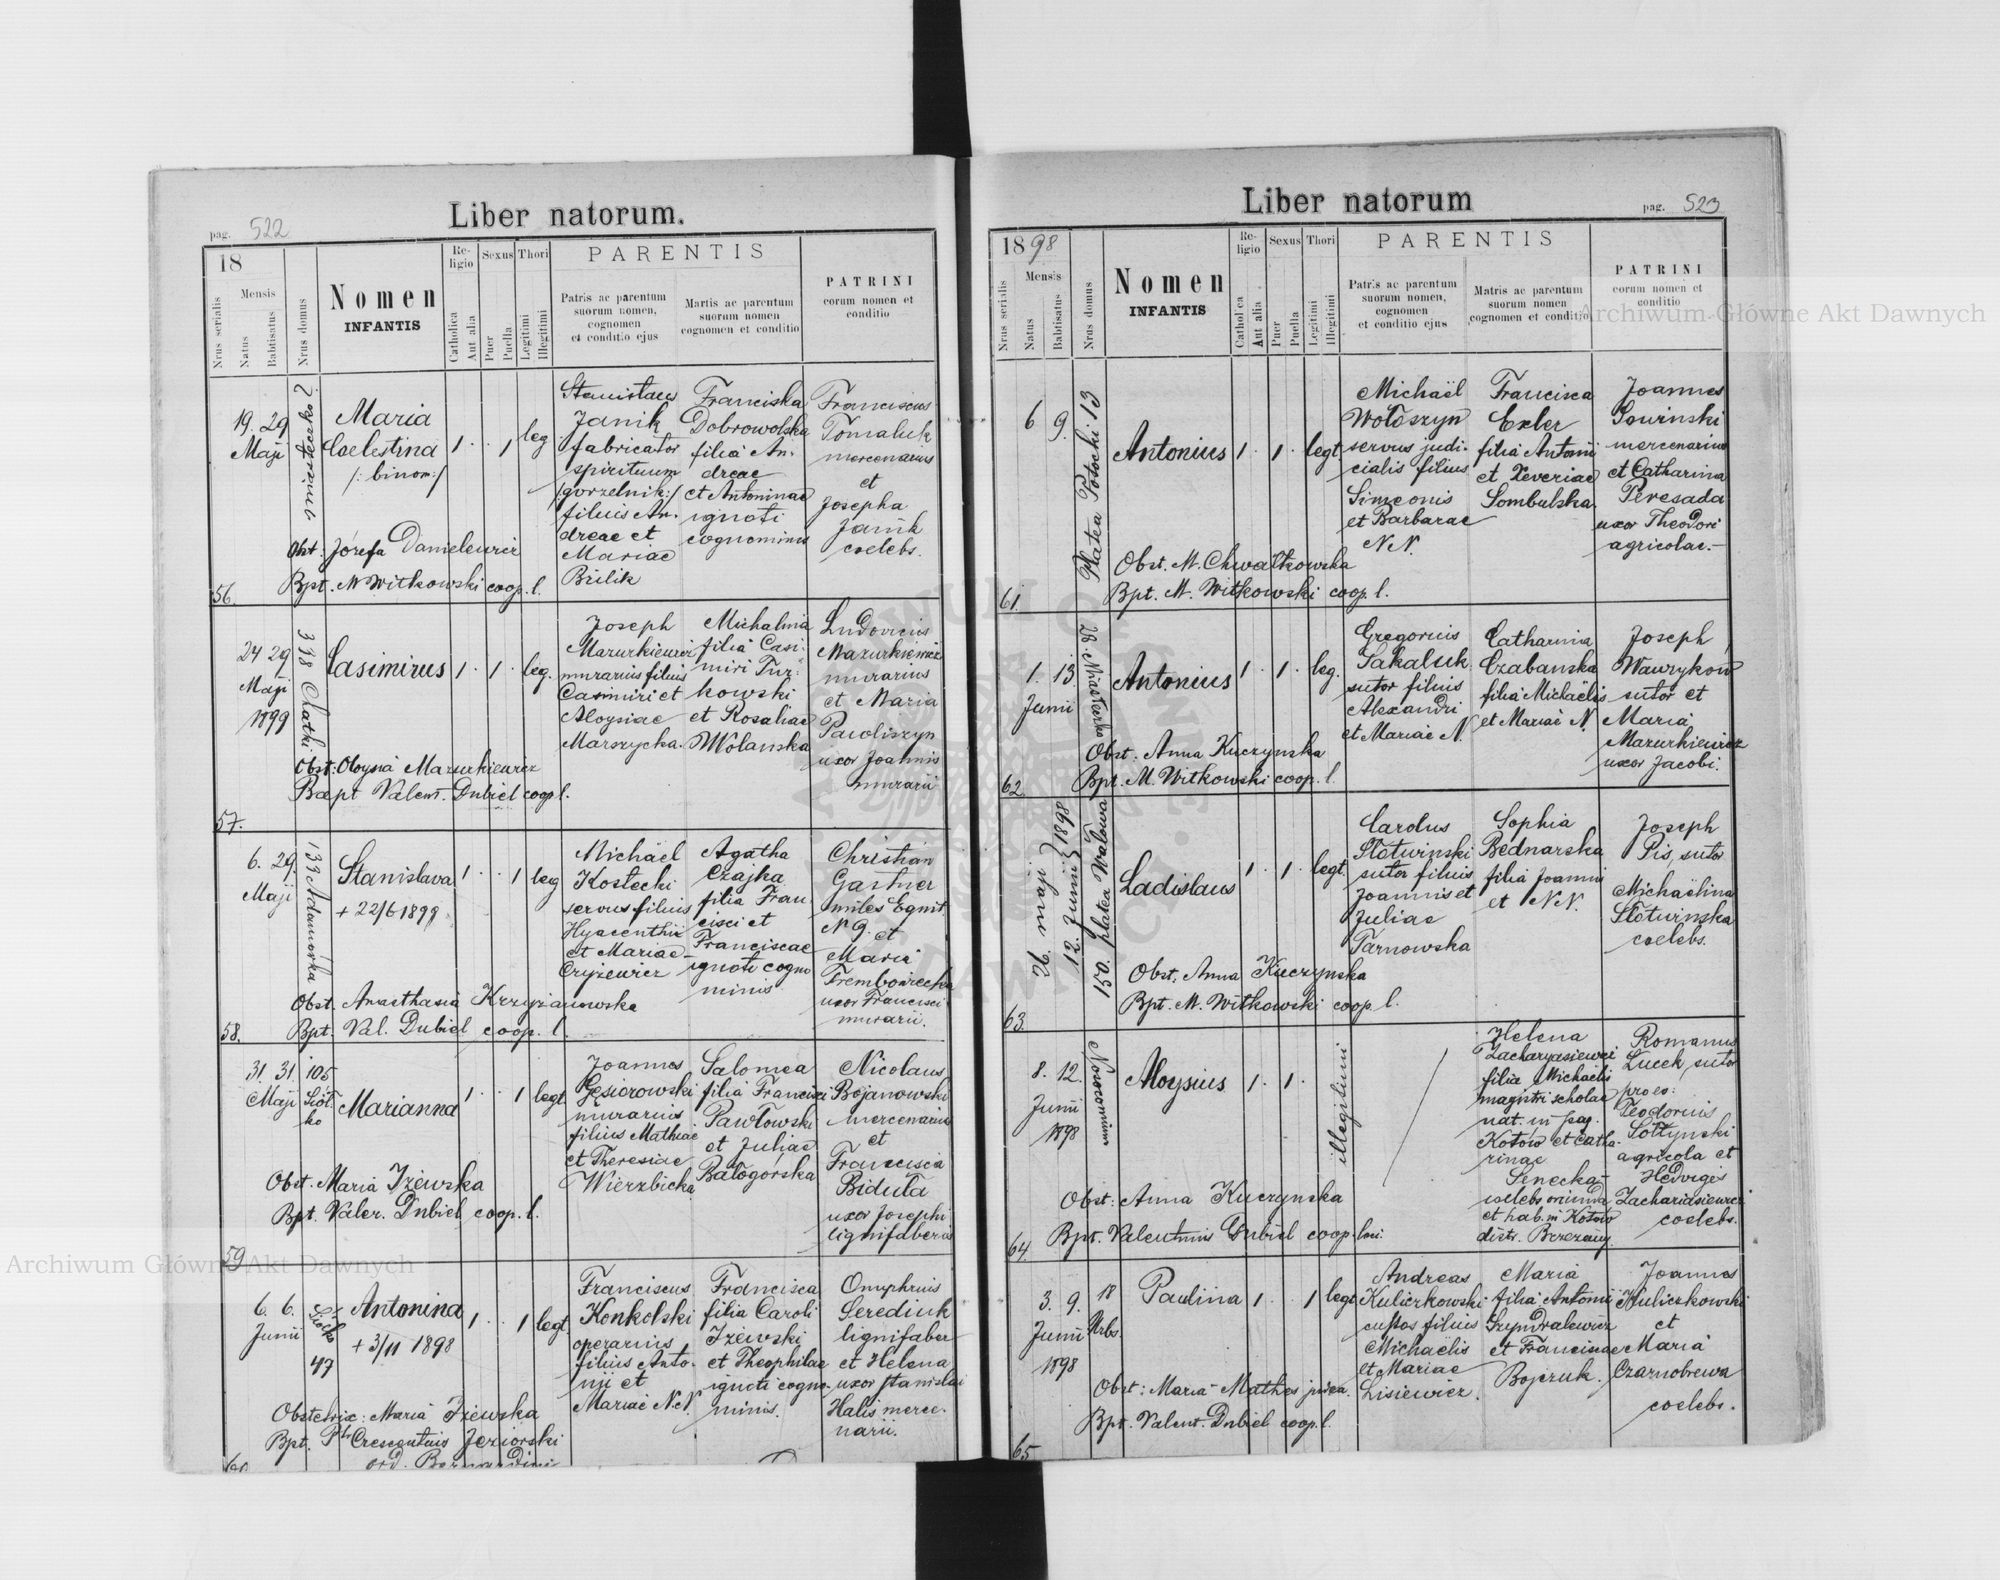 Liber natorum.
pag. 522
18
Nrus serialis
Mensis
Natus
Babtisatus
Nrus domus
Nomen
INFANTIS
Religio
Catholica
Aut alia
Sexus
Puer
Puella
Thori
Legitimi
Illegitimi
PARENTIS
Patris ac parentum
suorum nomen,
cognomen
et conditio ejus
Martis ac parentum
suorum nomen
cognomen et conditio
PATRINI
eorum nomen et
conditio
56.
19. 29
Maji
Maria
Coelestina
/: binom:/
1 1
leg
Stanislaus
Janik
fabricator
spirituum
/gorzelnik:/
filius An-
dreae et
Mariae
Brilik
Franciska
Dobrowolska
filia An-
dreae
et Antoninae
ignoti
cognominis
Franciscus
Tomaluk
mercenarius
et
Josepha
Janik
coelebs.
Obst. Józefa Danielewicz
Bpt. M Witkowski coop. l.
57.
24 29
Maji
1899
318 Chatki
Casimirus
1 1
leg.
Joseph
Mazurkiewicz
murarius filius
Casimiri et
Aloysiae
Marszycha.
Michalina
filia Casi-
miri Tur-
kowski
et Rosaliae
Wolanska
Ludovicus
Mazurkiewicz
murarius
et Maria
Pawliszyn
uxor Joannis
murarii
Obst: Aloysia Mazurkiewicz
Bapt Valent. Dubiel coop l.
58.
6. 29.
Maji
133 Adamówka
Stanislava
+ 22/6 1899
1 1
leg
Michael
Kostecki
servus filius
Hyacenthii
et Mariae
Czyżewicz
Agatha
Czajka
filia Fran
cisci et
Franciscae
ignoti cogno
minis
Christian
Gartner
miles Eqnit.
N 9. et
Maria
Trembowecka
uxor Francisci
murarii.
Obst. Anasthasia Krzyżanowska
Bpt. Val. Dubiel coop. l.
59
31. 31.
Maji
105
Siół-
ko
Marianna
1 1
legt.
Joannes
Gęsiorowski
murarius
filius Mathiae
et Theresiae
Wierzbicka
Salomea
filia Francisci
Pawłowski
et Juliae
Białogórska
Nicolaus
Bojanowski
mercenarius
et
Francisca
Biduła
uxor Josephi
lignifaberis
Obst. Maria Iżewska
Bpt. Valer. Dubiel coop. l.
60
6. 6.
Junii
Siółko
47
Antonina
+ 3/11 1898
1 1
legt.
Franciscus
Konkolski
operarius
filius Anto-
nii et
Mariae N.N.
Francisca
filia Caroli
Iżewski
et Theophilae
ignoti cogno-
minis.
Onuphrius
Serediuk
lignifaber
et Helena
uxor Stanislai
Halis merce-
narii.
Obstetrix: Maria Iżewska
Bpt. Crescentius Jeziorski
ord. Bernardini
Liber natorum
pag. 523
1898
Nrus serialis
Mensis
Natus
Babtisatus
Nrus domus
Nomen
INFANTIS
Religio
Catholica
Aut alia
Sexus
Puer
Puella
Thori
Legitimi
Illegitimi
PARENTIS
Patris ac parentum
suorum nomen,
cognomen
et conditio ejus
Matris ac parentum
suorum nomen
cognomen et conditio
PATRINI
eorum nomen et
conditio
61.
6 9.
Platea Potocki 13
Antonius
1 1
legt
Michaël
Wołoszyn
servus judi-
cialis filius
Simeonis
et Barbarae
N N.
Francisca
Exler
filia Antonii
et Xeveriae
Sombulska.
Joannes
Sowinski
mercenarius
et Catharina
Peresada
uxor Theodori
agricolae.-
Obst. M. Chwałkowska
Bpt. M. Witkowski coop. l.
62.
1. 13.
Junii
Antonius
1 1
leg.
Gregorius
Sakaluk
sutor filius
Alexandri
et Mariae N.
Catharina
Czabanska
filia Michaëlis
et Mariae N.
Joseph
Wawryków
sutor et
Maria
Mazurkiewicz
uxor Jacobi.
Obst. Anna Kuczynska
Bpt. M. Witkowski coop. l.
63.
26. maji
12. Junii
1898
150. platea Walowa
Ladislaus
1 1
legt.
Carolus
Słotwinski
sutor filius
Joannis et
Juliae
Tarnowska
Sophia
Bednarska
filia Joannis
et N N.
Joseph
Pis, sutor
Michaëlina
Słotwinska
coelebs.
Obst. Anna Kuczynska
Bpt. M. Witkowski coop. l.
64.
8. 12.
Junii
1898
Nosocomium
Aloysius
1 1
illegitimi
Helena
Zacharyasiewicz
filia Michaelis
magistri scholae
nat. in pag.
Kotów et Catha-
rinae
Senecka-
coelebs oriunda
et hab. in Kotow
distr. Brzezany.
Romanus
Lucek, sutor
proes:
Teodorius
Sołtynski
agricola et
Hedvigis
Zachariasiewicz
coelebs.
Obst: Anna Kuczynska
Bpt. Valentinus Dubiel coop. loci.
65
3. 9.
Junii
1898
18
Urbs.
Paulina
1 1
legt
Andreas
Kuliczkowski
custos filius
Michaëlis
et Mariae
Lisiewicz.
Maria
filia Antonii
Szyndralewicz
et Franciscae
Bojczuk.
Joannes
Kuliczkowski
et
Maria
Czarnobrewa
coelebs.
Obst: Maria Mathes
Bpt. Valent. Dubiel coop. l.
Archiwum Główne Akt Dawnych
Archiwum Główne Akt Dawnych